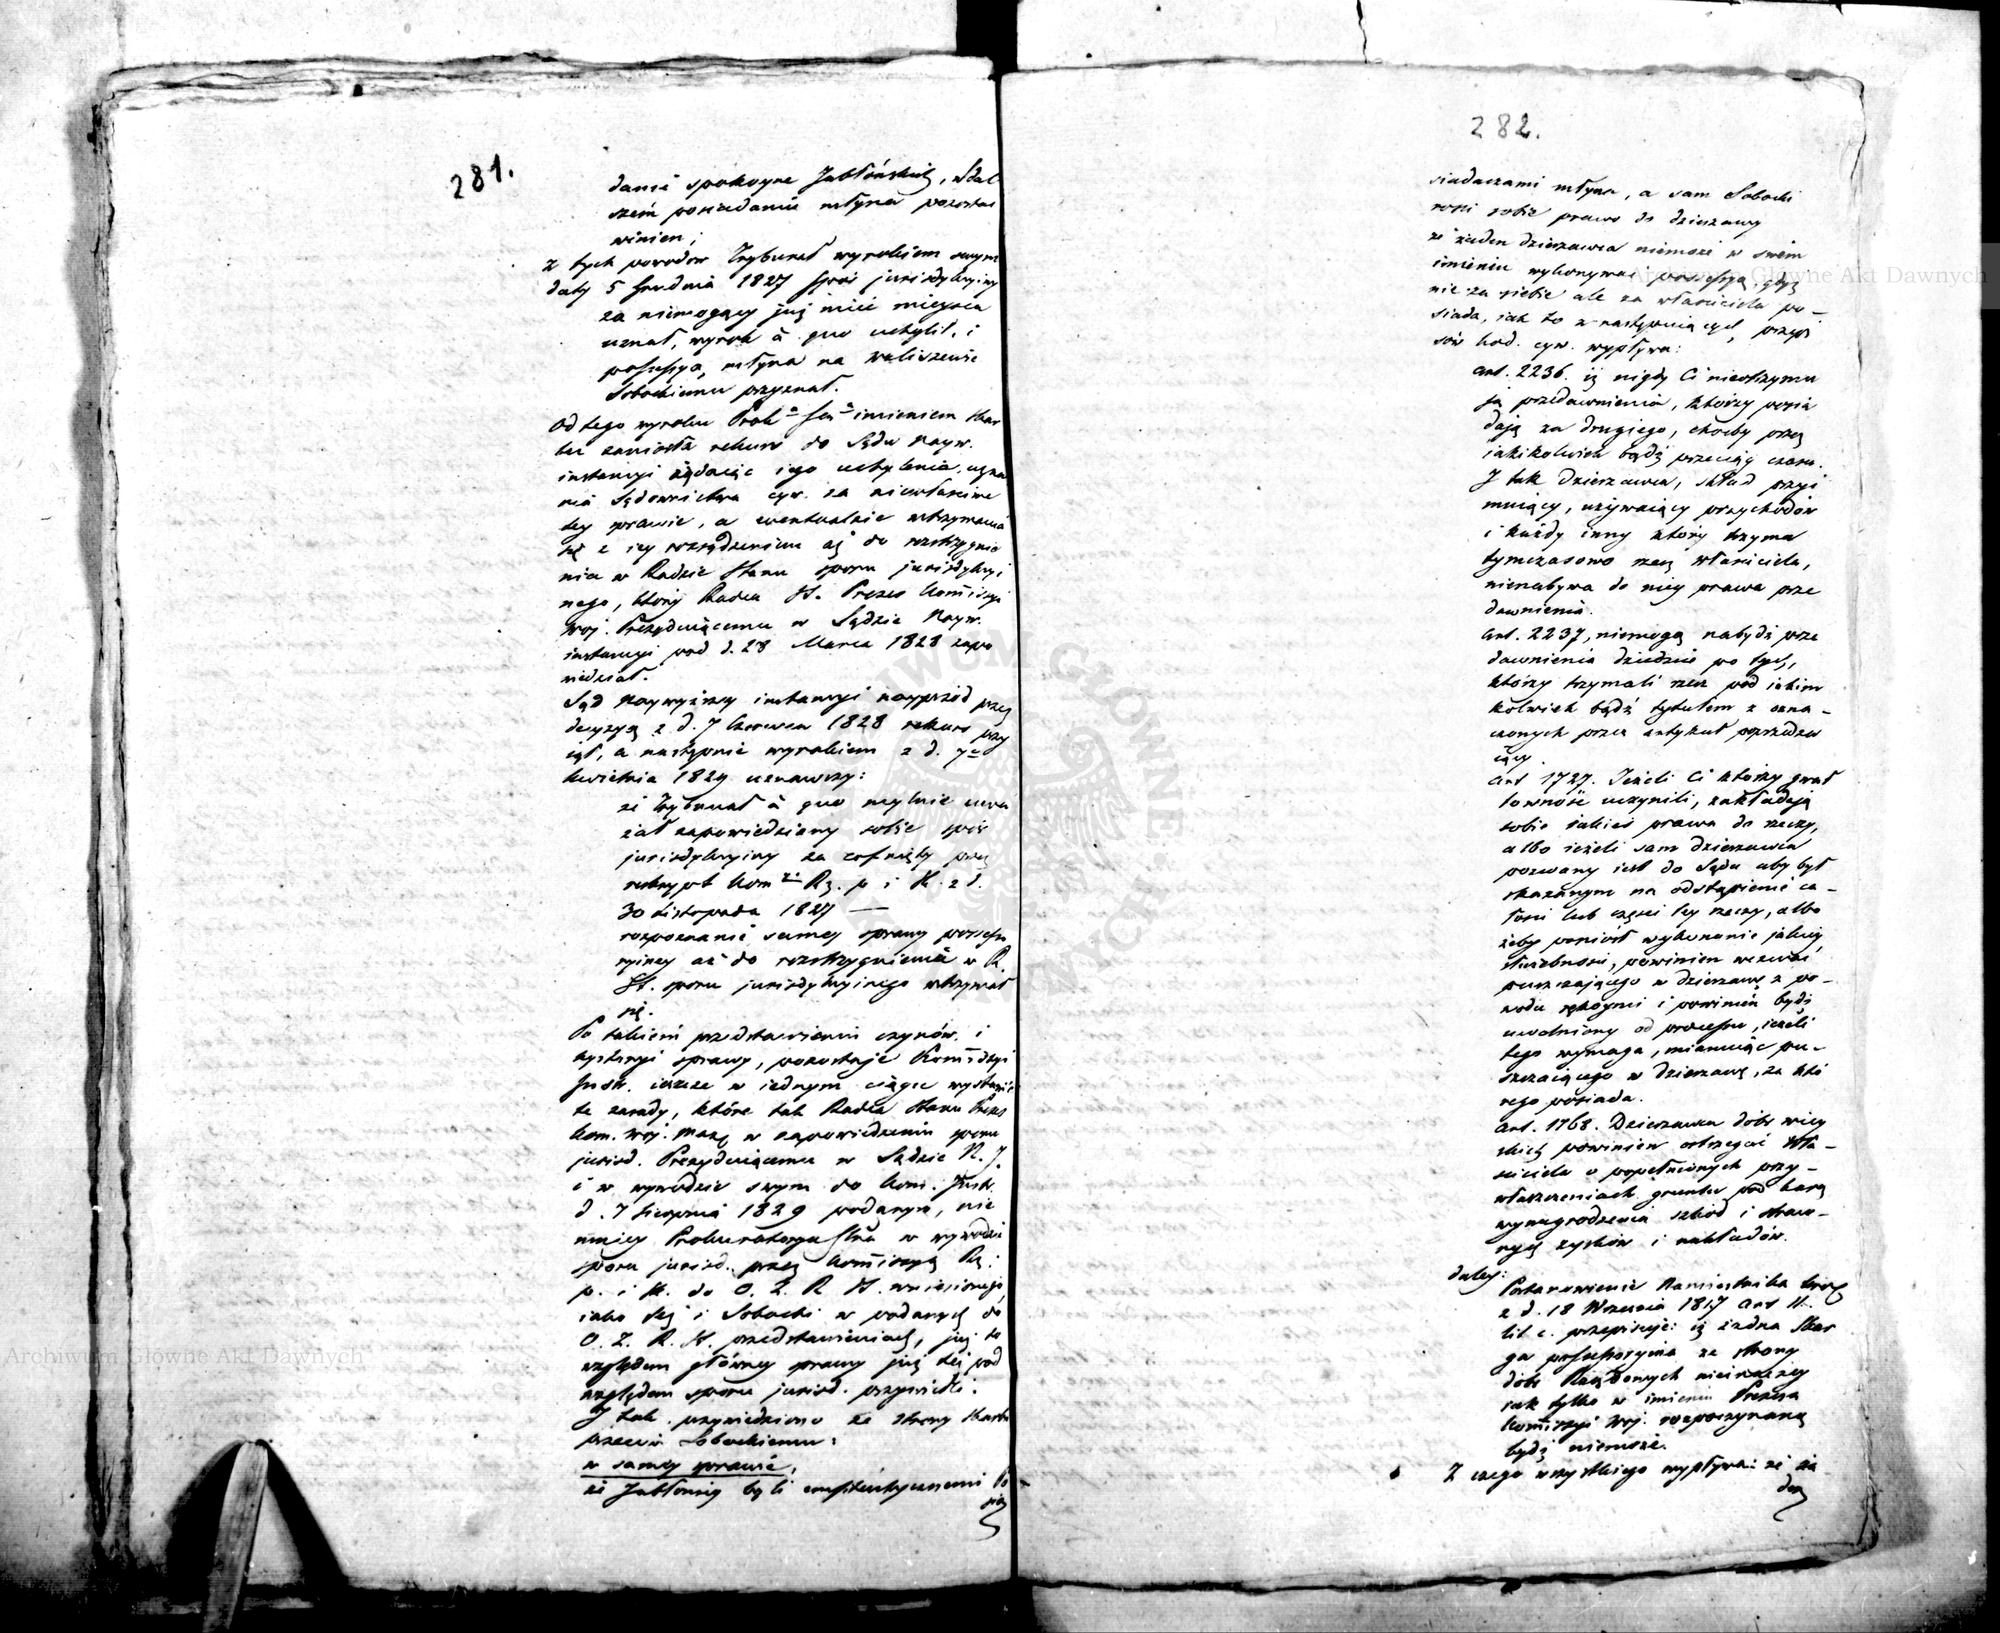 281.
danie spokoyne Jabłońskich, w dal
szém posiadaniu młyna pozostać
winien;
Z tych powodów Trybunał wyrokiem swym
daty 5 Grudnia 1827 spór jurisdykcyiny
za niemogący już mieć mieysca
uznał, wyrok à quo uchylił, i
possessyą młyna na Waliszewie
Sobockiemu przyznał.
Od tego wyroku Prok. Jen. imieniem skar
bu zaniosła rekurs do Sądu Nayw.
instancyi żądaiąc iego uchylenia, uzna
nia Sądownictwa cyw. za niewłaściwe
tey sprawie, a ewentualnie wstrzymania
się z iey rozsądzeniem aż do rozstrzygnie
nia w Radzie Stanu sporu jurisdykcyi
nego, który Radca St. Prezes Kommissyi
Woj. Prezyduiącemu w Sądzie Nayw.
instancyi pod d. 28 Marca 1828 zapo
wiedział.
Sąd Naywyższey instancyi nayprzód przez
decyzyą z d. 7 Czerwca 1828 rekurs przy
iął, a następnie wyrokiem z d. 7o
Kwietnia 1829 uznawszy:
że Trybunał à quo mylnie uwa
żał zapowiedziany sobie spór
jurisdykcyiny za cofnięty przez
reskrypt Kom. Rz. p i S. z d.
30 Listopada 1827 —
rozpoznanie samey sprawy possess
ryiney aż do rozstrzygnienia w R.
St. sporu jurisdykcyinego wstrzymał
się.
Po takiém przedstawieniu czynów i
hystoryi sprawy, pozostaje Kommissyi
Instr. ieszcze w iednym ciągu wystawić
te zasady, które tak Radca Stanu Prezes
Kom. Woj. Maz. w zapowiedzeniu sporu
jurisd. Prezyduiącemu w Sądzie N. J.
i w wywodzie swym do Kom. Instr.
d. 7 Sierpnia 1829 podanym, nie
mniey Prokuratorya Jlna w wywodzie
sporu jurisd. przez Kommissyą Rz:
p. i S. do O. Z. R. St. wniesionego,
iako też i Sobocki w podanych do
O. Z. R. St. przedstawieniach, już to
względem główney sprawy już też pod
względem sporu jurisd. przywiedli.
I tak przywiedziono ze strony skarbu
przeciw Sobockiemu:
w samey sprawie,
że Jabłońscy byli emfiteutycznemi Po
sia
282.
siadaczami młyna, a sam Sobocki
rości sobie prawo do dzierzawy
że żaden dzierzawca niemoże w swém
imieniu wykonywać possessyą, gdyż
nie za siebie ale za właściciela po-
siada, iak to z następuiących przepi
sów kod. cyw. wypływa:
art. 2236. iż nigdy Ci nieotrzymu
ją przedawnienia, którzy posia
dają za drugiego, choćby przez
iakikolwiek bądź przeciąg czasu.
I tak dzierzawca, skład przyi
muiący, używaiący przychodów
i każdy inny który trzyma
tymczasowo rzecz właściciela,
nienabywa do niey prawa prze
dawnienia.
Art. 2237, niemogą nabydź prze
dawnienia dziedzice po tych,
którzy trzymali rzecz pod iakim
kolwiek bądź tytułem z ozna-
czonych przez artykuł poprzedza
iący.
Art 1727. Jeżeli Ci którzy gwał
towność uczynili, zakładają
sobie iakieś prawa do rzeczy,
albo ieżeli sam dzierzawca
pozwany iest do Sądu aby był
skazanym na odstąpienie ca-
łości lub części tey rzeczy, albo
żeby poniósł wykonanie jakiey
służebności, powinien wezwać
puszczaiącego w dzierzawę z po-
wodu rękoymi i powinien bydź
uwolniony od processu, ieżeli
tego wymaga, mianuiąc pu-
szczaiącego w dzierzawę, za któ
rego posiada.
Art. 1768. Dzierzawca dóbr wiey
skich powinien ostrzegać Wła-
ściciela o popełnionych przy-
właszczeniach gruntu pod karą
wynagrodzenia szkód i straco-
nych zysków i nakładów.
daley:
Postanowienie Namiestnika Kros
z d. 18 Września 1817 Art 11.
lit c. przepisuje: iż żadna Skar
ga possessoryina ze strony
dóbr Rządowych nieinaczey
iak tylko w imieniu Prezesa
Kommissyi Woj. rozpoczynaną
bydź niemoże.
Z czego wszystkiego wypływa: że ża
den
Archiwum Główne Akt Dawnych
Archiwum Główne Akt Dawnych